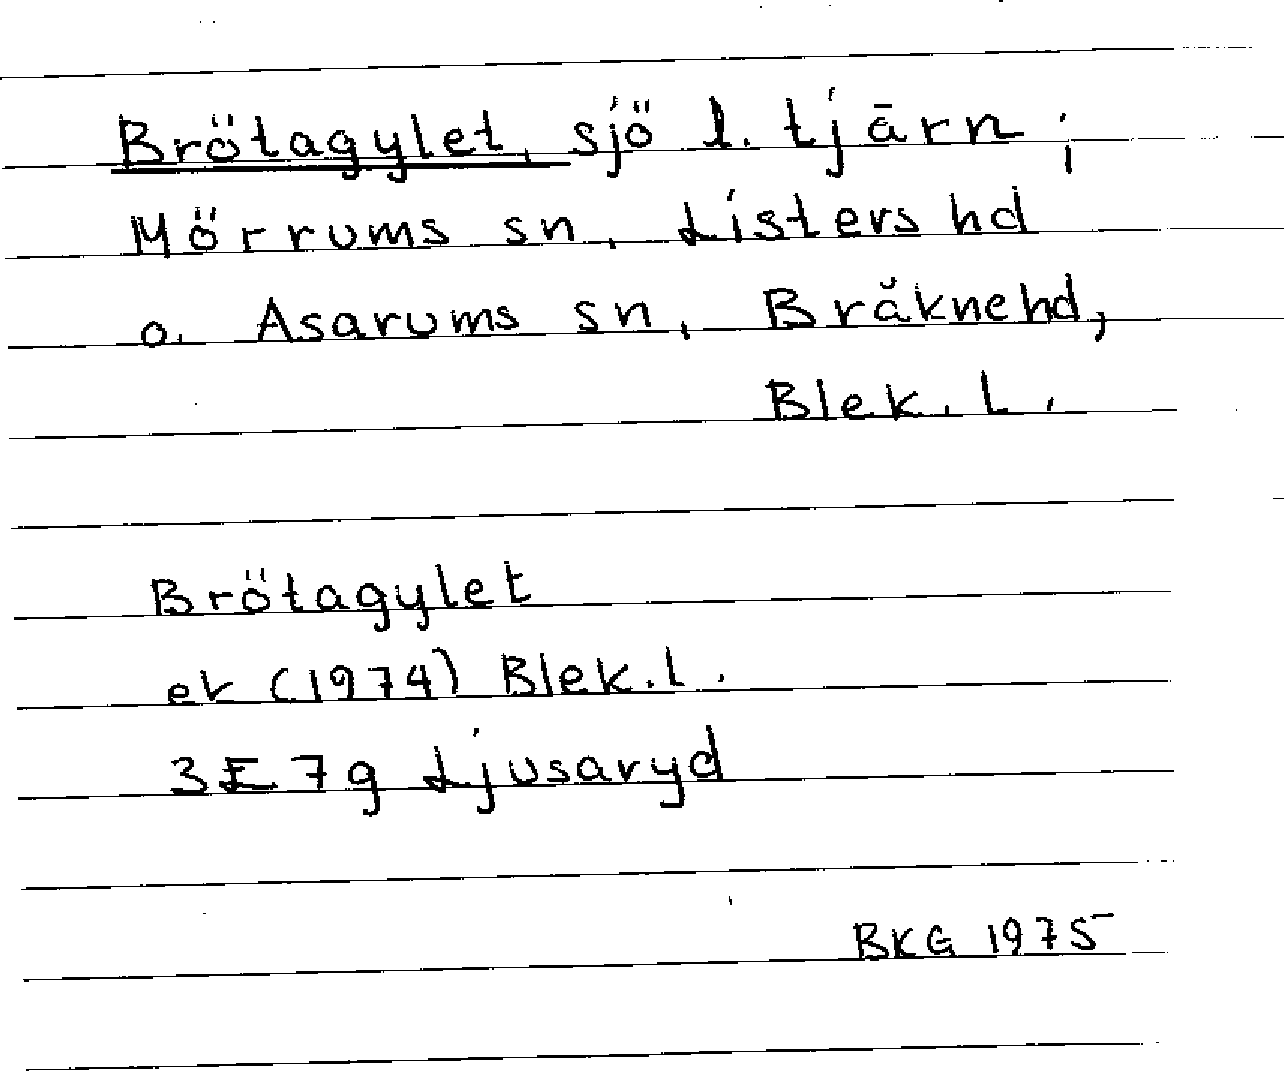 Brötagylet, sjö l. tjärn;
Mörrums sn, Listers hd
o. Asarums sn, Bräknehd,
Blek. l.
Brötagylet
ek (1974) Blek. l.
3E 7g Ljusaryd
BKG 1975